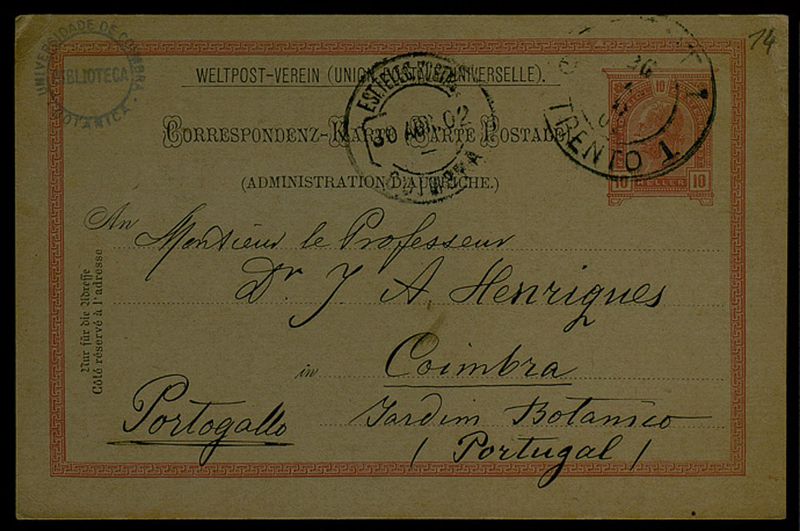 UNIVERSIDADE DE COIMBRA
BIBLIOTECA
BOTANICA
14
WELTPOST-VEREIN (UNION POSTALE UNIVERSELLE).
CORRESPONDENZ-KARTE CARTE POSTALE
(ADMINISTRATION D'AUTRICHE.)
30 AGO 02
COIMBRA
TRENTO 1
26
10
10 HELLER 10
An
Monsieur le Professeur
Dr J A Henriques
in Coimbra
Portogallo
Jardim Botanico
(Portugal)
Nur für die Adresse
Côté réservé à l'adresse